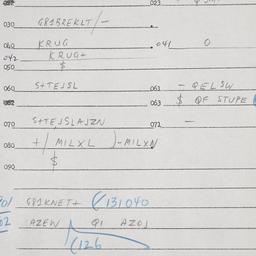 023
030 G81BREKLT/-
040 KRUG . 041 0
042 KRUG+
050 $
060 S+TEJSL 061 - QELSW
063 $ QF STUPE
070 S+TEJSLAJZN 072 -
080 +/MILXL)-MILXN
$
090
G81KNET+ (131040
02 AZEW QI AZOJ
(126